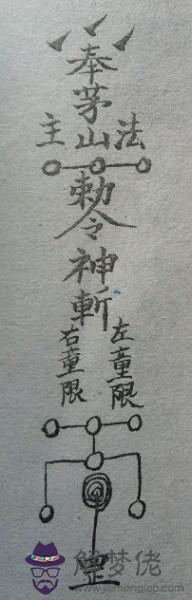 奉
茅
主山法
勅
令
神
斬
右童限 左童限
罡
解梦佬
www.jiemenglao.com